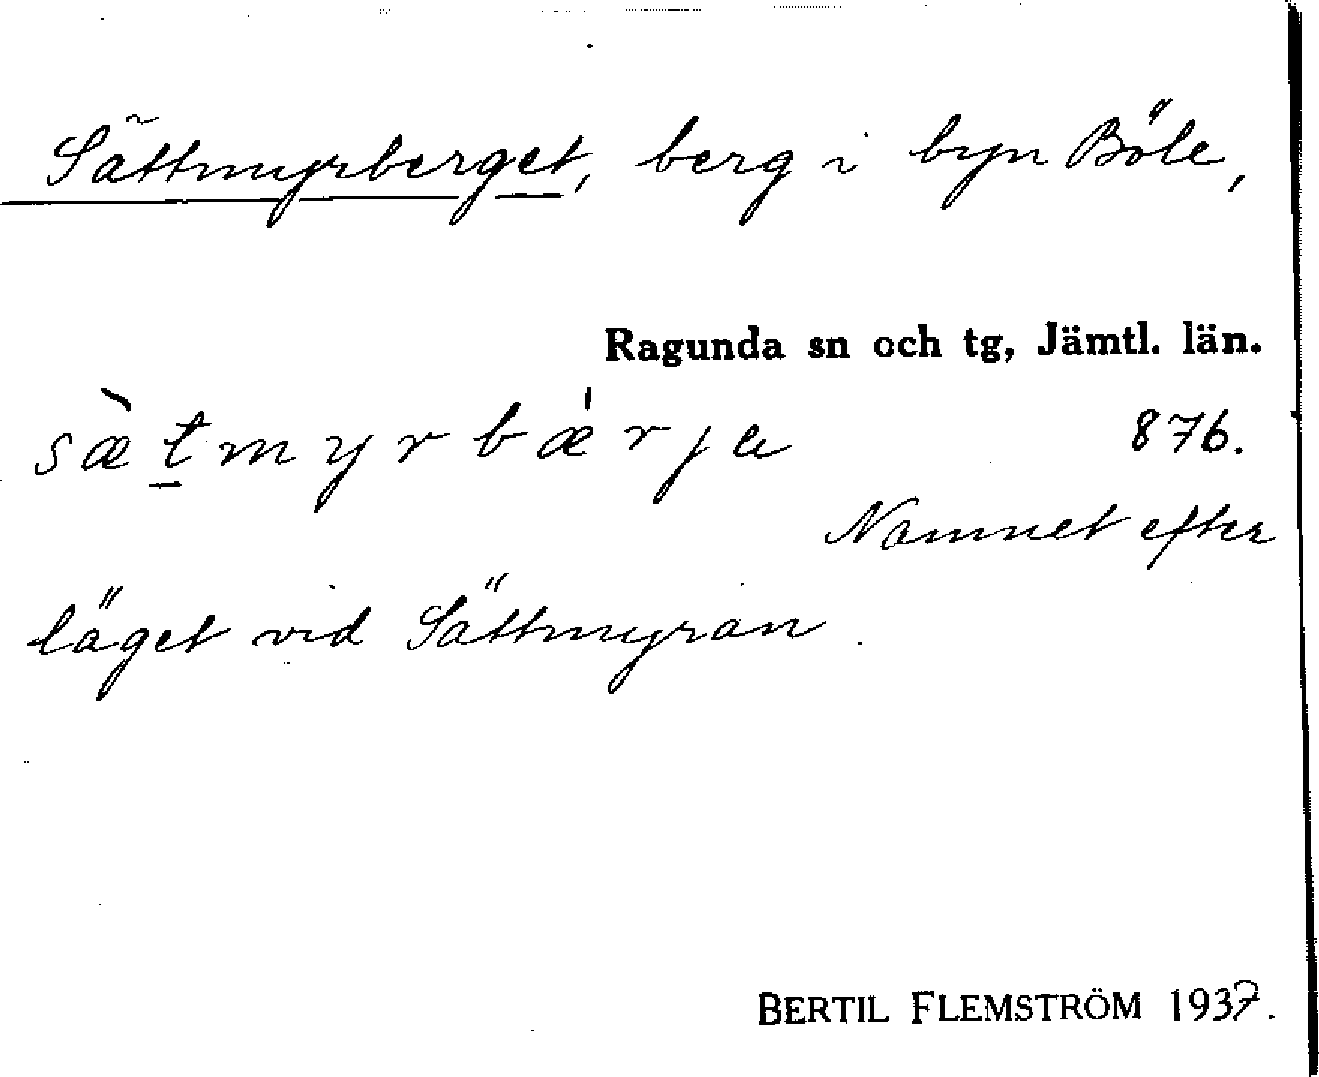 Sättmyrberget, berg i byn Böle,
Ragunda sn och tg, Jämtl. län.
sæ̀t̲myrbǽrjɐ 876.
Namnet efter
läget vid Sättmyran.
BERTIL FLEMSTRÖM 1937.